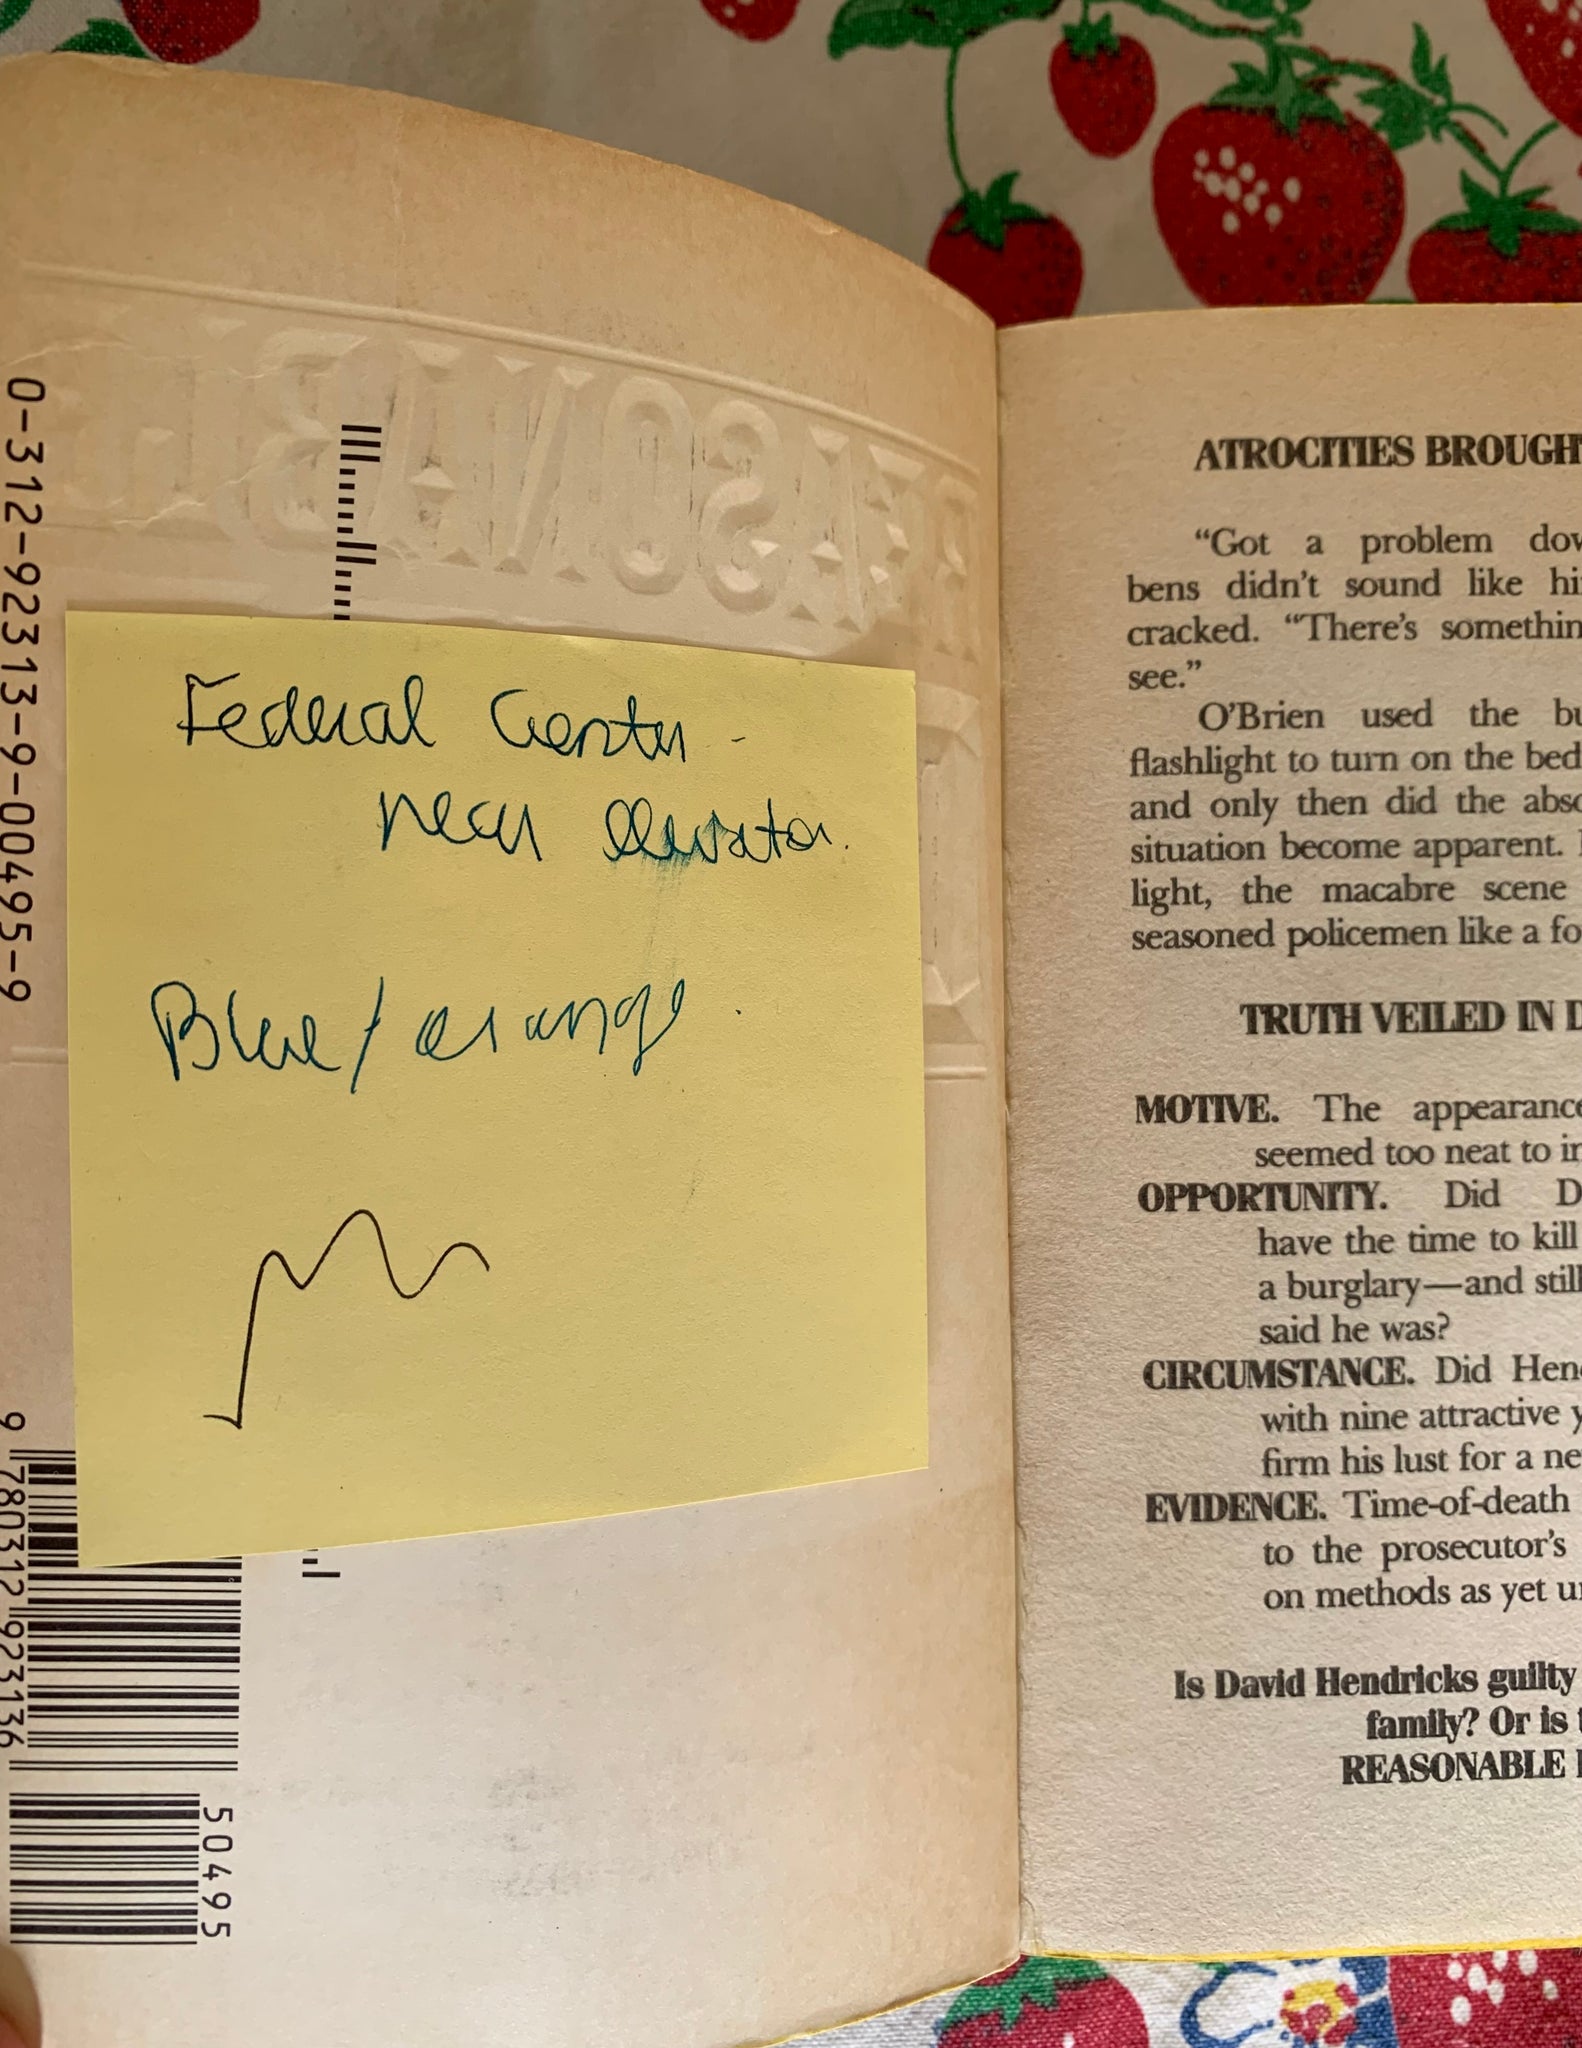 0-312-92313-9-00495-9
9 780312 923136
50495
REASONAB
Federal Center -
near elevator.
Blue/orange.
ATROCITIES BROUGH
“Got a problem dow
bens didn’t sound like hi
cracked. “There’s somethin
see.”
O’Brien used the bu
flashlight to turn on the bed
and only then did the abso
situation become apparent.
light, the macabre scene
seasoned policemen like a fo
TRUTH VEILED IN D
MOTIVE. The appearance
seemed too neat to in
OPPORTUNITY. Did D
have the time to kill
a burglary—and still
said he was?
CIRCUMSTANCE. Did Hen
with nine attractive y
firm his lust for a ne
EVIDENCE. Time-of-death
to the prosecutor’s
on methods as yet un
Is David Hendricks guilty
family? Or is t
REASONABLE